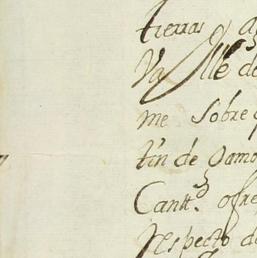 tierras y a
Valle de
me sobre q
tin de Vamo
Cantt.d ofre
respecto de